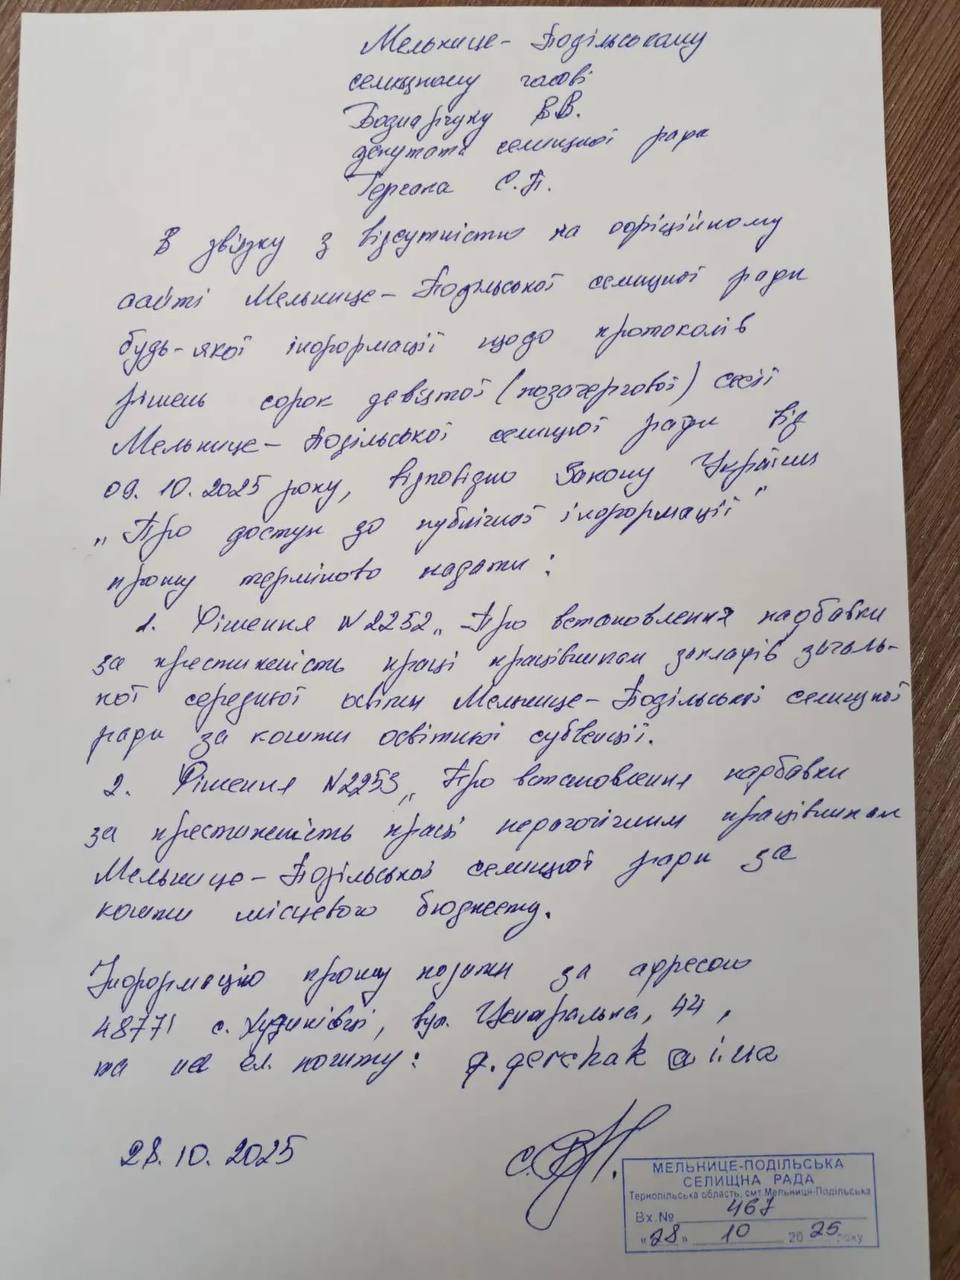 Мельнице-Подільському
селищному голові
Боднарчуку В.В.
депутата селищної ради
С.П.
В звязку з відсутністю на офіційному
сайті Мельнице-Подільської селищної ради
будь-якої інформації щодо протоколів
рішень сорок девятої (позачергової) сесії
Мельнице-Подільської селищної ради від
09.10.2025 року, відповідно Закону України
„Про доступ до публічної інформації"
прошу терміново надати:
1. Рішення №2252 „Про встановлення надбавки
за престижність праці працівникам закладів загаль-
ної середньої освіти Мельнице-Подільської селищної
ради за кошти освітньої субвенції.
2. Рішення №2253 „Про встановлення надбавки
за престижність праці педагогічним працівникам
Мельнице-Подільської селищної ради за
кошти місцевого бюджету.
Інформацію прошу надати за адресою
48771 с. Худиківці, вул. Центральна, 44,
та на ел. пошту:
28.10.2025
МЕЛЬНИЦЕ-ПОДІЛЬСЬКА
СЕЛИЩНА РАДА
Тернопільська область, смт.Мельниця-Подільська
Вх.№ 467
"28" 10 2025 року